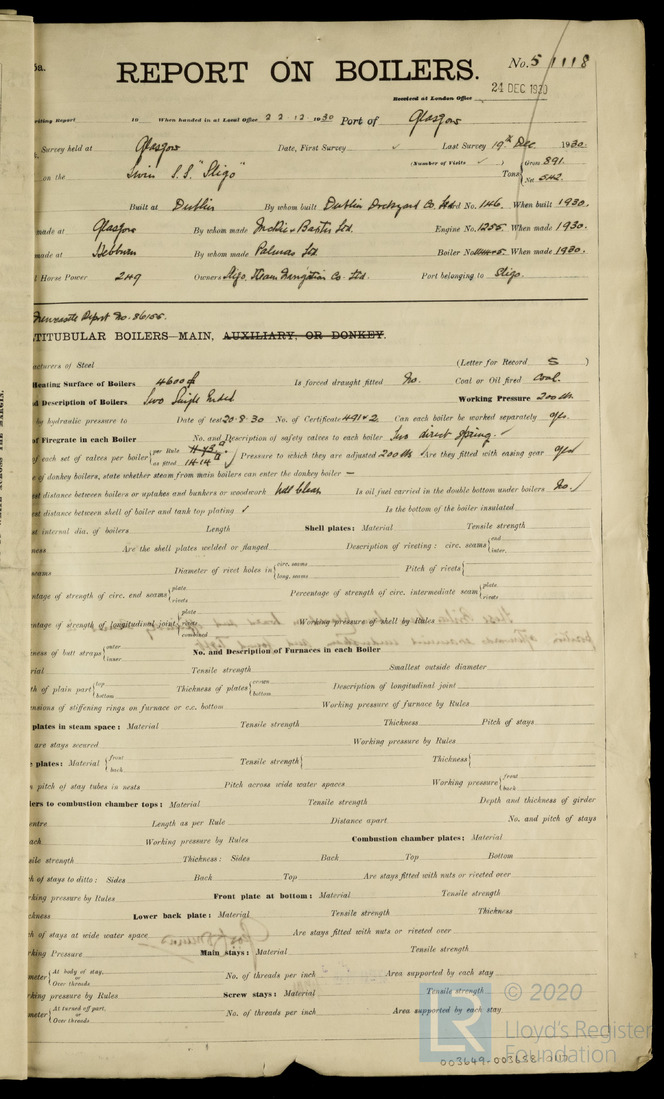 5a.
REPORT ON BOILERS.
No. 51118
24 DEC 1930
Received at London Office
Writing Report 19 When handed in at Local Office 22.12.1930 Port of Glasgow
Survey held at Glasgow Date, First Survey ✓ Last Survey 19th Dec. 1930.
(Number of Visits ✓ ) Gross 891.
on the S.S. "Sligo" Tons Net 542.
Built at Dublin By whom built Dublin Dockyard Co. Ltd. No. 146. When built 1930.
made at Glasgow By whom made McKie & Baxter Ltd. Engine No. 1255. When made 1930.
made at Hebburn By whom made Palmers Ltd. Boiler No. When made 1930.
Horse Power 249 Owners Sligo Steam Navigation Co. Ltd. Port belonging to Sligo.
Newcastle Report No. 86155.
TITUBULAR BOILERS—MAIN, AUXILIARY, OR DONKEY.
acturers of Steel (Letter for Record S )
Heating Surface of Boilers 4600 Is forced draught fitted No. Coal or Oil fired Coal.
d Description of Boilers Two Single Ended Working Pressure 200 lbs.
by hydraulic pressure to Date of test 20.8.30 No. of Certificate 4912 Can each boiler be worked separately yes.
of Firegrate in each Boiler No. and Description of safety valves to each boiler Two direct spring. ✓
of each set of valves per boiler { per Rule as fitted Pressure to which they are adjusted 200 lbs Are they fitted with easing gear yes
e of donkey boilers, state whether steam from main boilers can enter the donkey boiler —
st distance between boilers or uptakes and bunkers or woodwork Well clear Is oil fuel carried in the double bottom under boilers No. ✓
st distance between shell of boiler and tank top plating ✓ Is the bottom of the boiler insulated
st internal dia. of boilers Length Shell plates: Material Tensile strength
ness Are the shell plates welded or flanged Description of riveting: circ. seams { end inter.
seams Diameter of rivet holes in { circ. seams long. seams Pitch of rivets {
ntage of strength of circ. end seams { plate rivets Percentage of strength of circ. intermediate seam { plate rivets
ntage of strength of longitudinal joint { plate rivets combined Working pressure of shell by Rules
ness of butt straps { outer inner No. and Description of Furnaces in each Boiler
rial Tensile strength Smallest outside diameter
th of plain part { top bottom Thickness of plates { crown bottom Description of longitudinal joint
ensions of stiffening rings on furnace or c.c. bottom Working pressure of furnace by Rules
plates in steam space: Material Tensile strength Thickness Pitch of stays
are stays secured Working pressure by Rules
e plates: Material { front back Tensile strength { Thickness {
n pitch of stay tubes in nests Pitch across wide water spaces Working pressure { front back
ders to combustion chamber tops: Material Tensile strength Depth and thickness of girder
entre Length as per Rule Distance apart No. and pitch of stays
ach Working pressure by Rules Combustion chamber plates: Material
sile strength Thickness: Sides Back Top Bottom
h of stays to ditto: Sides Back Top Are stays fitted with nuts or riveted over
rking pressure by Rules Front plate at bottom: Material Tensile strength
ckness Lower back plate: Material Tensile strength Thickness
h of stays at wide water space Are stays fitted with nuts or riveted over
rking Pressure Main stays: Material Tensile strength
meter { At body of stay, or Over threads No. of threads per inch Area supported by each stay
rking pressure by Rules Screw stays: Material Tensile strength
meter { At turned off part, or Over threads No. of threads per inch Area supported by each stay
LR © 2020
Lloyd's Register
Foundation